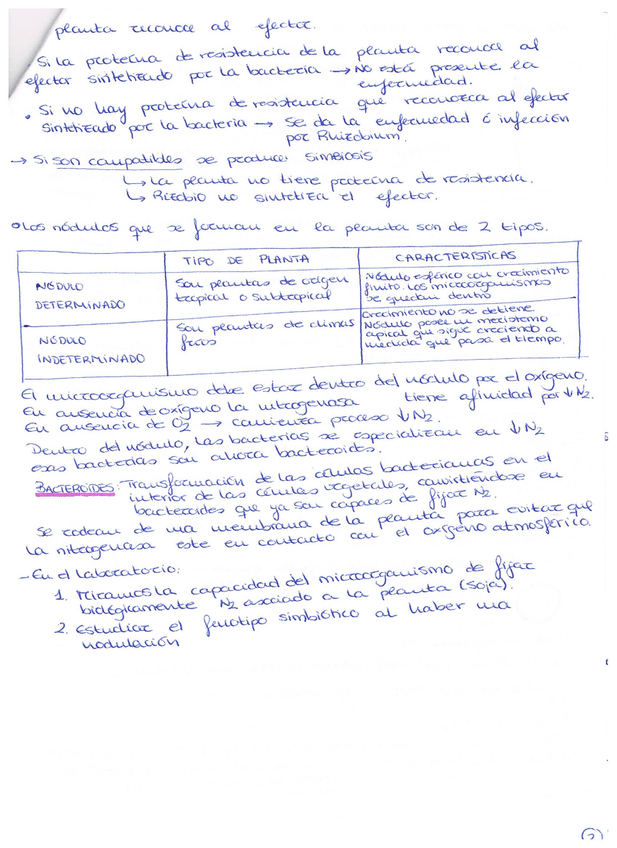 planta reconoce al efector.
• Si la proteína de resistencia de la planta reconoce al
efector sintetizado por la bacteria → No está presente la
enfermedad.
• Si no hay proteína de resistencia que reconozca al efector
sintetizado por la bacteria → Se da la enfermedad ó infección
por Rhizobium.
→ Si son compatibles se produce simbiosis
↳ La planta no tiene proteína de resistencia.
↳ Rizobio no sintetiza el efector.
• Los nódulos que se forman en la planta son de 2 tipos.
TIPO DE PLANTA CARACTERÍSTICAS
NÓDULO DETERMINADO
Son plantas de origen
tropical o subtropical
Nódulo esférico con crecimiento
finito. Los microorganismos
se quedan dentro
NÓDULO INDETERMINADO
Son plantas de climas
fríos
Crecimiento no se detiene
Nódulo posee un meristemo
apical que sigue creciendo a
medida que pasa el tiempo.
El microorganismo debe estar dentro del nódulo por el oxígeno.
En ausencia de oxígeno la nitrogenasa tiene afinidad por ↓N₂.
En ausencia de O₂ → comienza proceso ↓N₂.
Dentro del nódulo, las bacterias se especializan en ↓N₂
esas bacterias son ahora bacteroides.
BACTEROIDES: Transformación de las células bacterianas en el
interior de las células vegetales, convirtiéndose en
bacteroides que ya son capaces de fijar N₂.
Se rodean de una membrana de la planta para evitar que
la nitrogenasa este en contacto con el oxígeno atmosférico.
- En el laboratorio:
1. Miramos la capacidad del microorganismo de fijar
biológicamente N₂ asociado a la planta (soja).
2. Estudiar el fenotipo simbiótico al haber una
nodulación